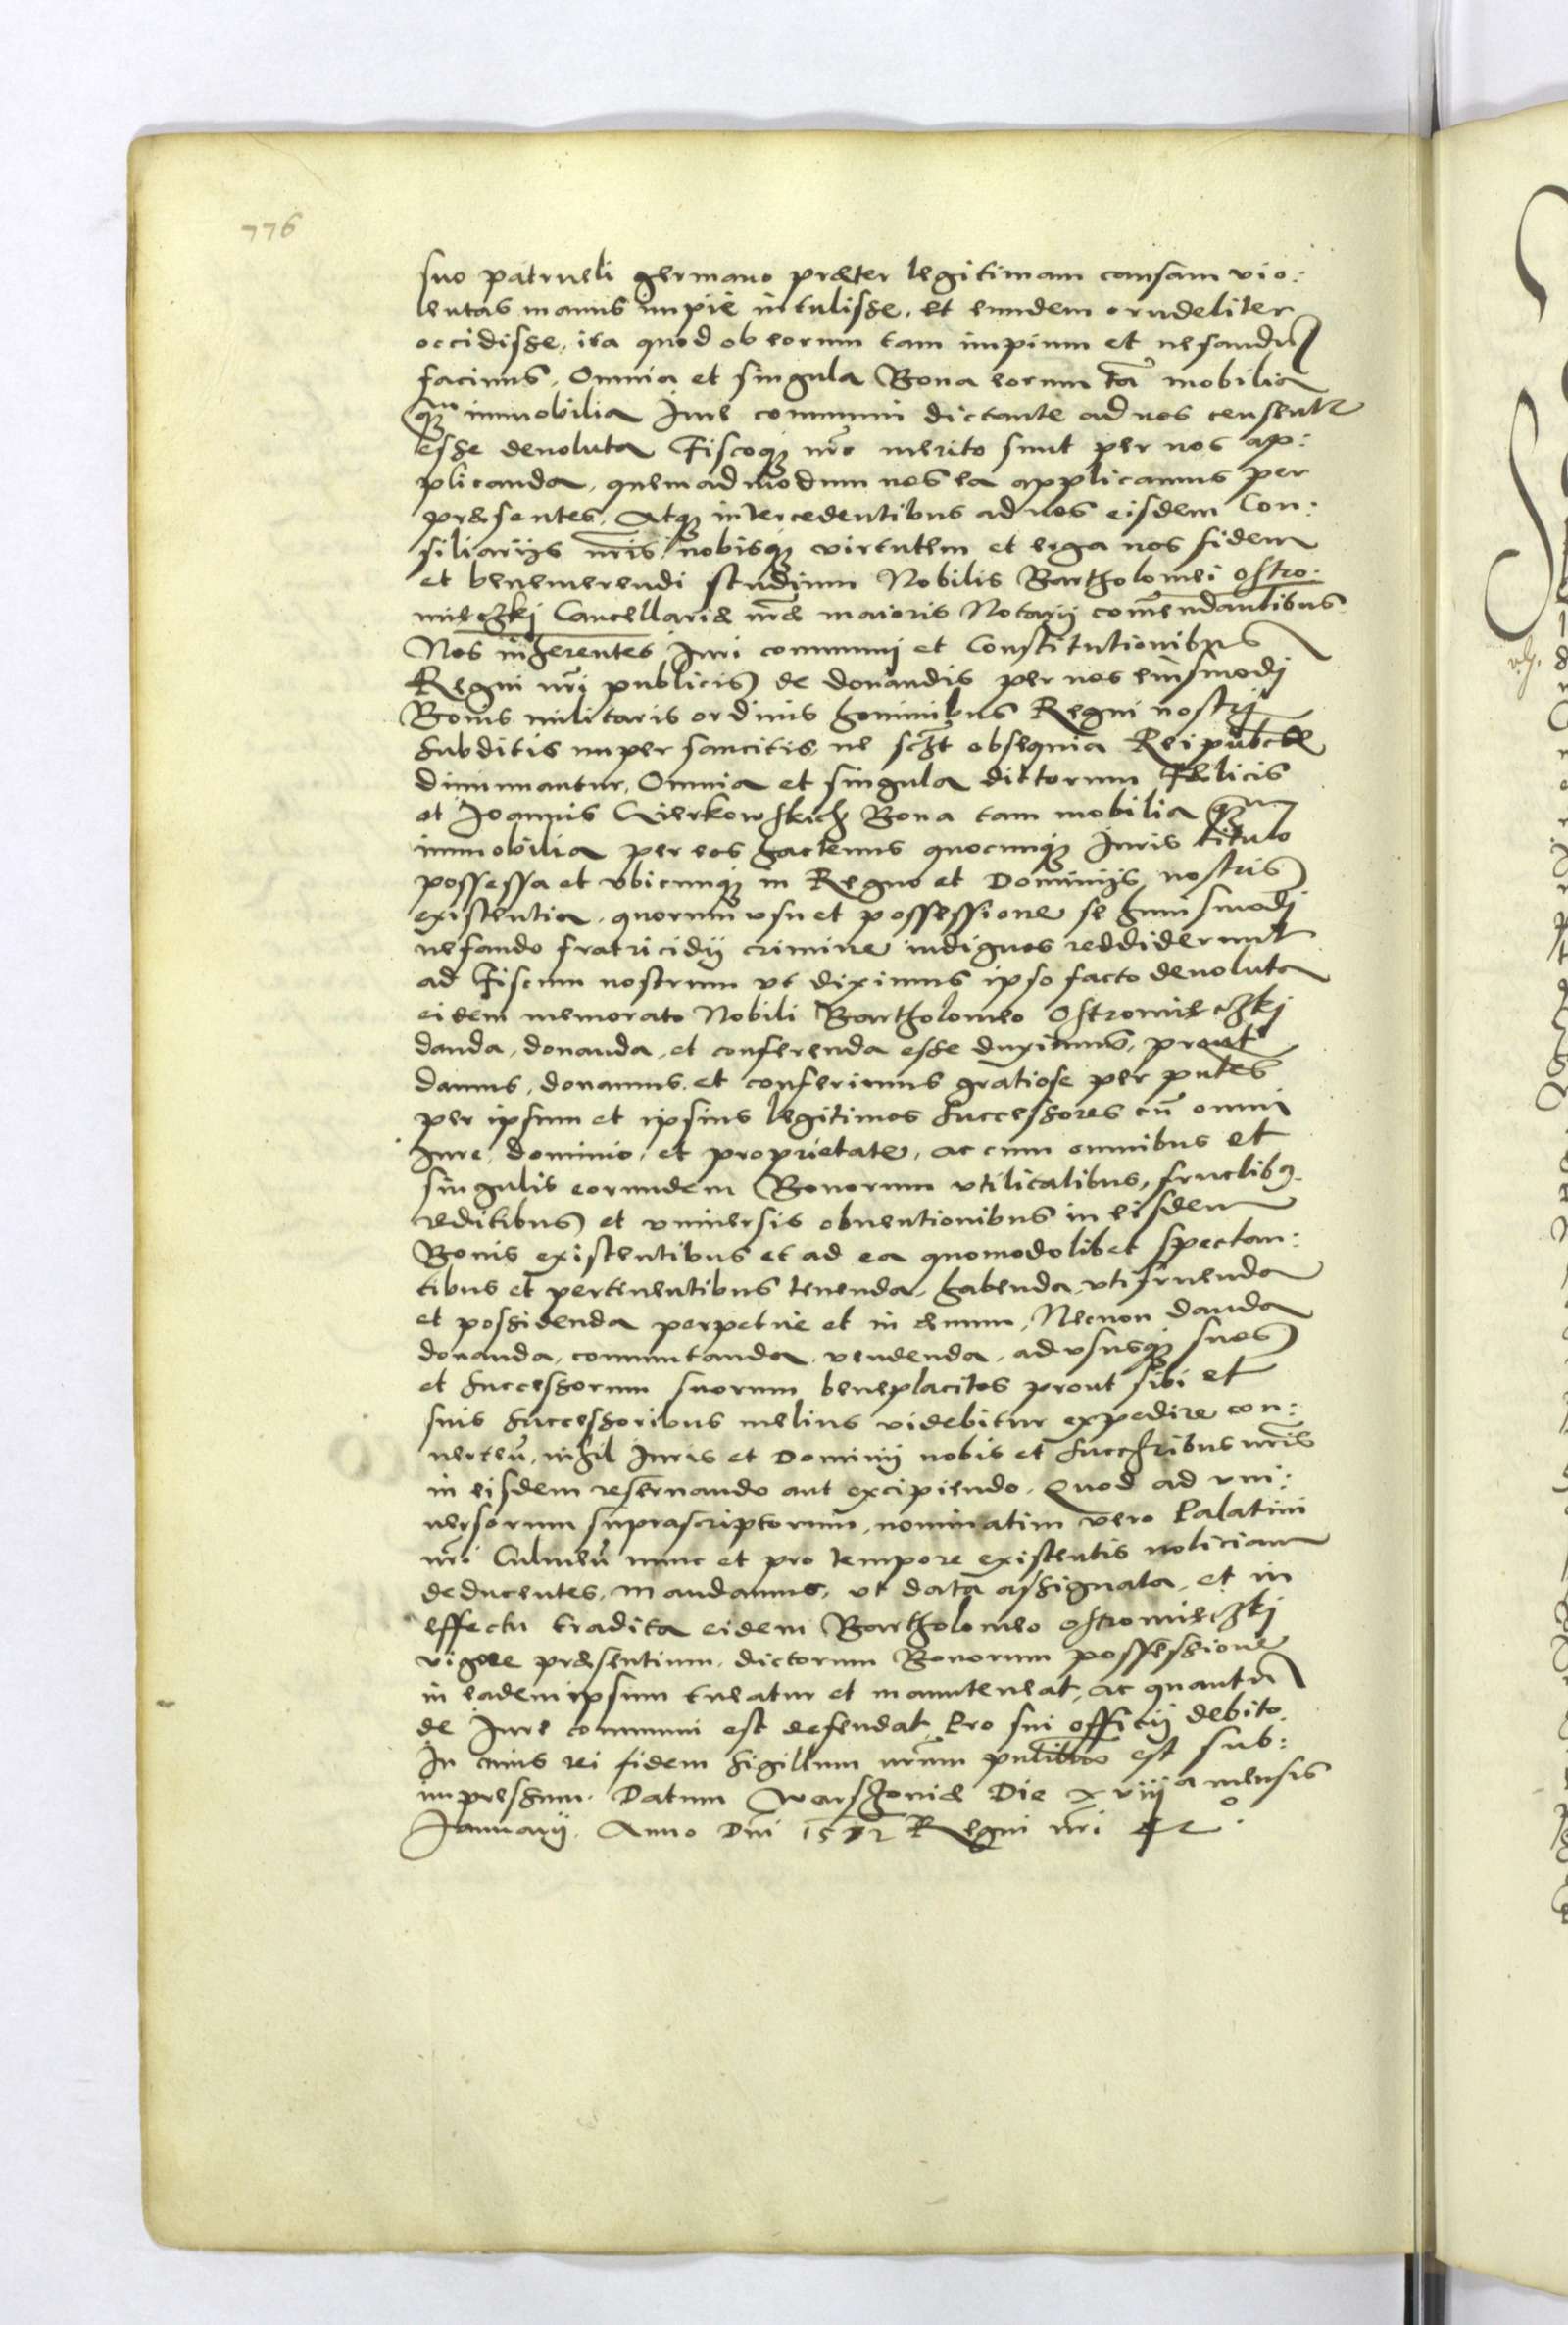 776
suo patrueli germano præter legitimam causam vio:
lentas manus impie intulisse, et eundem crudeliter
occidisse, ita quod ob eorum tam impium et nefandũ
facinus, Omnia et singula Bona eorum tã mobilia
quam immobilia Jure communi dictante ad nos censentur
esse deuoluta Fiscoq̃ nr̃o merito sunt per nos ap:
plicanda, quemadmodum nos ea applicamus per
præsentes, Atq̃ intercedentibus ad nos eisdem Con:
siliarijs nr̃is, nobisq̃ virtutem et erga nos fidem
et benemerendi studium Nobilis Bartholomei Ostro:
mieczkj Cancellariæ nr̃æ maioris Notarij com̃endantibus
Nos inherentes Juri communj et Constitutionibus
Regni nr̃i publicis de donandis per nos eiusmodj
Bonis militaris ordinis hominibus Regni nostrj
subditis nuper sancitis, ne sclt obsequia Reipubcæ
diminuantur, Omnia et singula dictorum Fælicis
et Joannis Wierkowskich Bona tam mobilia qm̃
immobilia per eos hactenus quocunq̃ Juris titulo
possessa et vbicunq̃ in Regno et Dominijs nostris
existentia, quorum vsu et possessione se huiusmodj
nefando fratricidij crimine indignos reddiderunt
ad Fiscum nostrum vt diximus ipso facto deuoluta
eidem memorato Nobili Bartholomeo Ostromieczkj
danda, donanda, et conferenda esse duximus, prout
damus, donamus, et conferimus gratiose per pntes
per ipsum et ipsius legitimos successores cũ omni
Jure, dominio, et proprietate, ac cum omnibus et
singulis eorundem Bonorum vtilitatibus, fructibq
reditibus et vniuersis obuentionibus in eisdem
Bonis existentibus et ad ea quomodolibet spectan:
tibus et pertinentibus tenenda, habenda, vtifruenda
et possidenda perpetue et in æuum, Necnon danda
donanda, commutanda, vendenda, ad vsusq̃ suos
et successorum suorum beneplacitos prout sibi et
suis successoribus melius videbitur expedire con:
uerteñ, nihil Juris et Dominij nobis et succesribus nr̃is
in eisdem reseruando aut excipiendo. Quod ad vni:
uersorum suprascriptorum, nominatim vero Palatini
nr̃i Culmeñ nunc et pro tempore existentis noticiam
deducentes, mandamus, vt data assignata, et in
effectu tradita eidem Bartholomeo Ostromieczkj
vigore præsentium, dictorum Bonorum possessione
in eadem ipsum tueatur et manuteneat, ac quantũ
de Jure communi est defendat, Pro sui officij debito.
In cuius rei fidem sigillum nr̃um pntibus est sub:
impressum. Datum Warszouiæ Die xviij a mensis
Januarij. Anno Dni 1572 Regni nr̃i 42°.